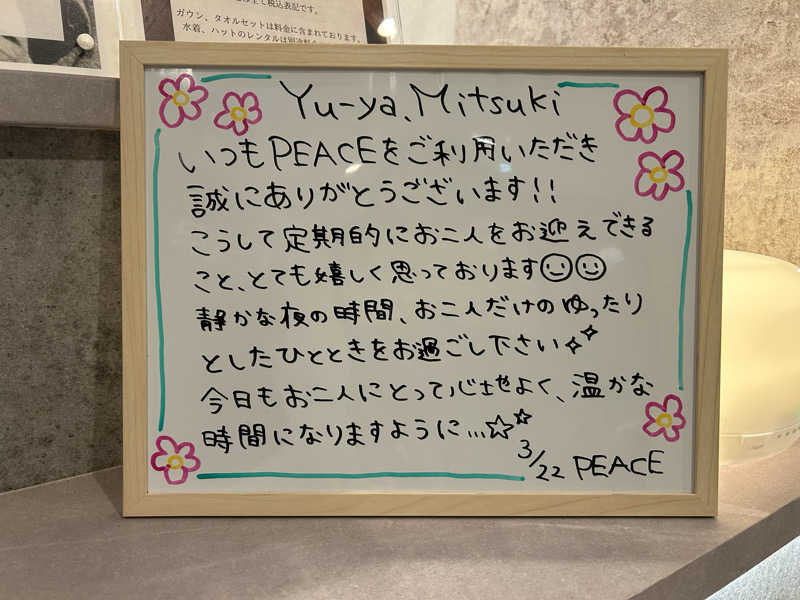 は全て税込表記です。
ガウン、タオルセットは料金に含まれております。
水着、ハットのレンタルは別途料
Yu-ya、Mitsuki
いつもPEACEをご利用いただき
誠にありがとうございます!!
こうして定期的にお二人をお迎えできる
こと、とても嬉しく思っております
静かな夜の時間、お二人だけのゆったり
としたひとときをお過ごし下さい
今日もお二人にとって心地よく、温かな
時間になりますように...☆☆
3/22 PEACE